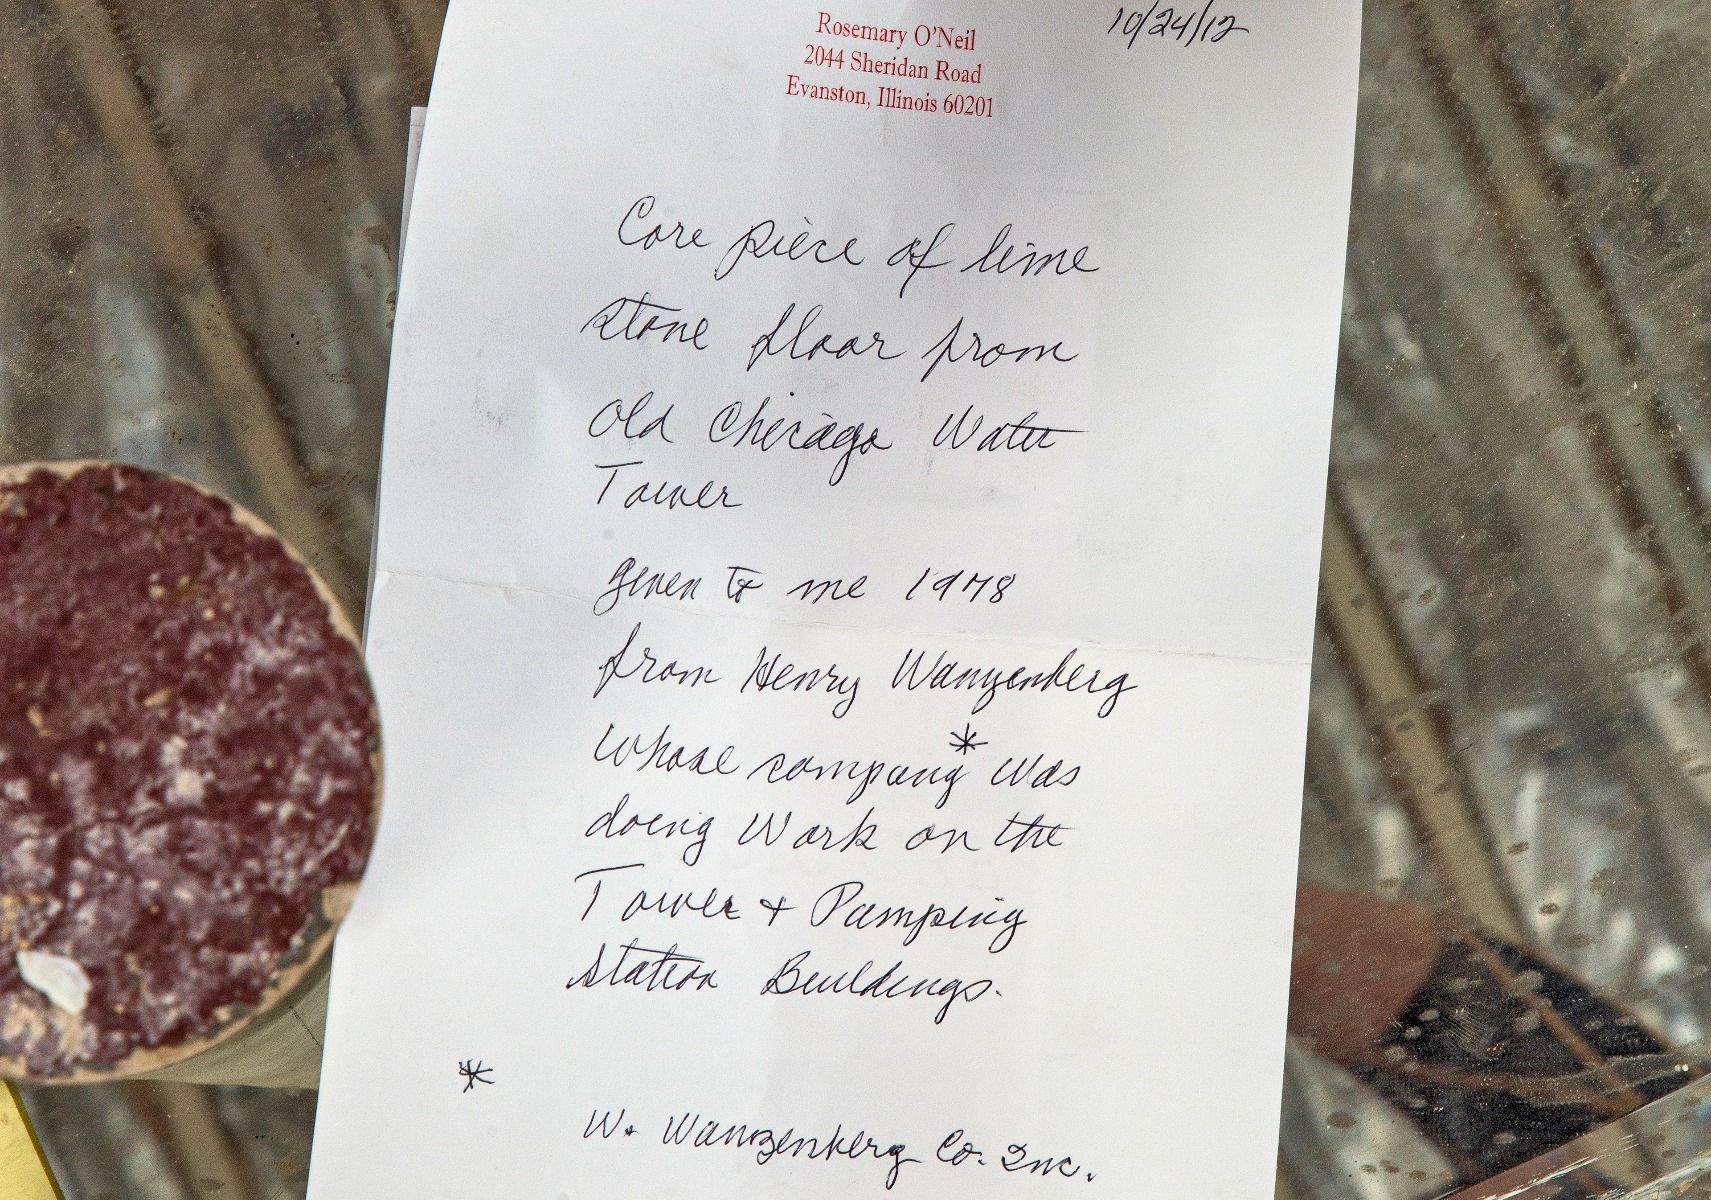 Rosemary O'Neil
2044 Sheridan Road
Evanston, Illinois 60201
10/24/12
Core piece of lime
stone floor from
Old Chicago Water
Tower
given to me 1978
from Henry Wanzenberg
Whose company* was
doing Work on the
Tower + Pumping
Station Buildings.
*
W. Wanzenberg Co. Inc.